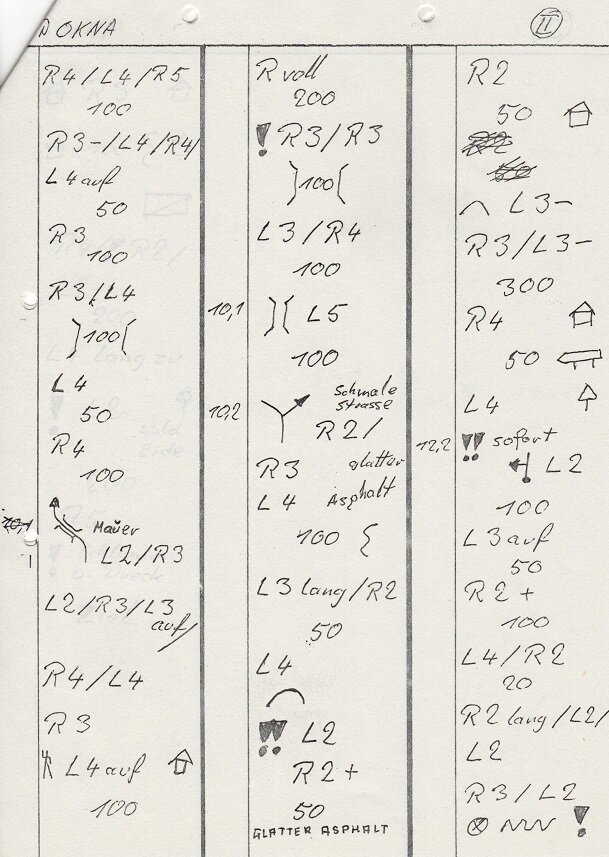 OKNA
II
R4/L4/R5
100
R3-/L4/R4/
L4 auf
50
R3
100
R3/L4
100
L4
50
R4
100
10,1
Mauer
L2/R3
L2/R3/L3
auf/
R4/L4
R3
L4 auf
100
R voll
200
! R3/R3
100
L3/R4
100
10,1
L5
100
10,2
Schmale
Strasse
R2/
R3 glatter
L4 Asphalt
100
L3 lang/R2
50
L4
!! L2
R2+
50
GLATTER ASPHALT
R2
50
L3-
R3/L3-
300
R4
50
L4
12,2
!! sofort
L2
100
L3 auf
50
R2+
100
L4/R2
20
R2 lang/L2/
L2
R3/L2
!